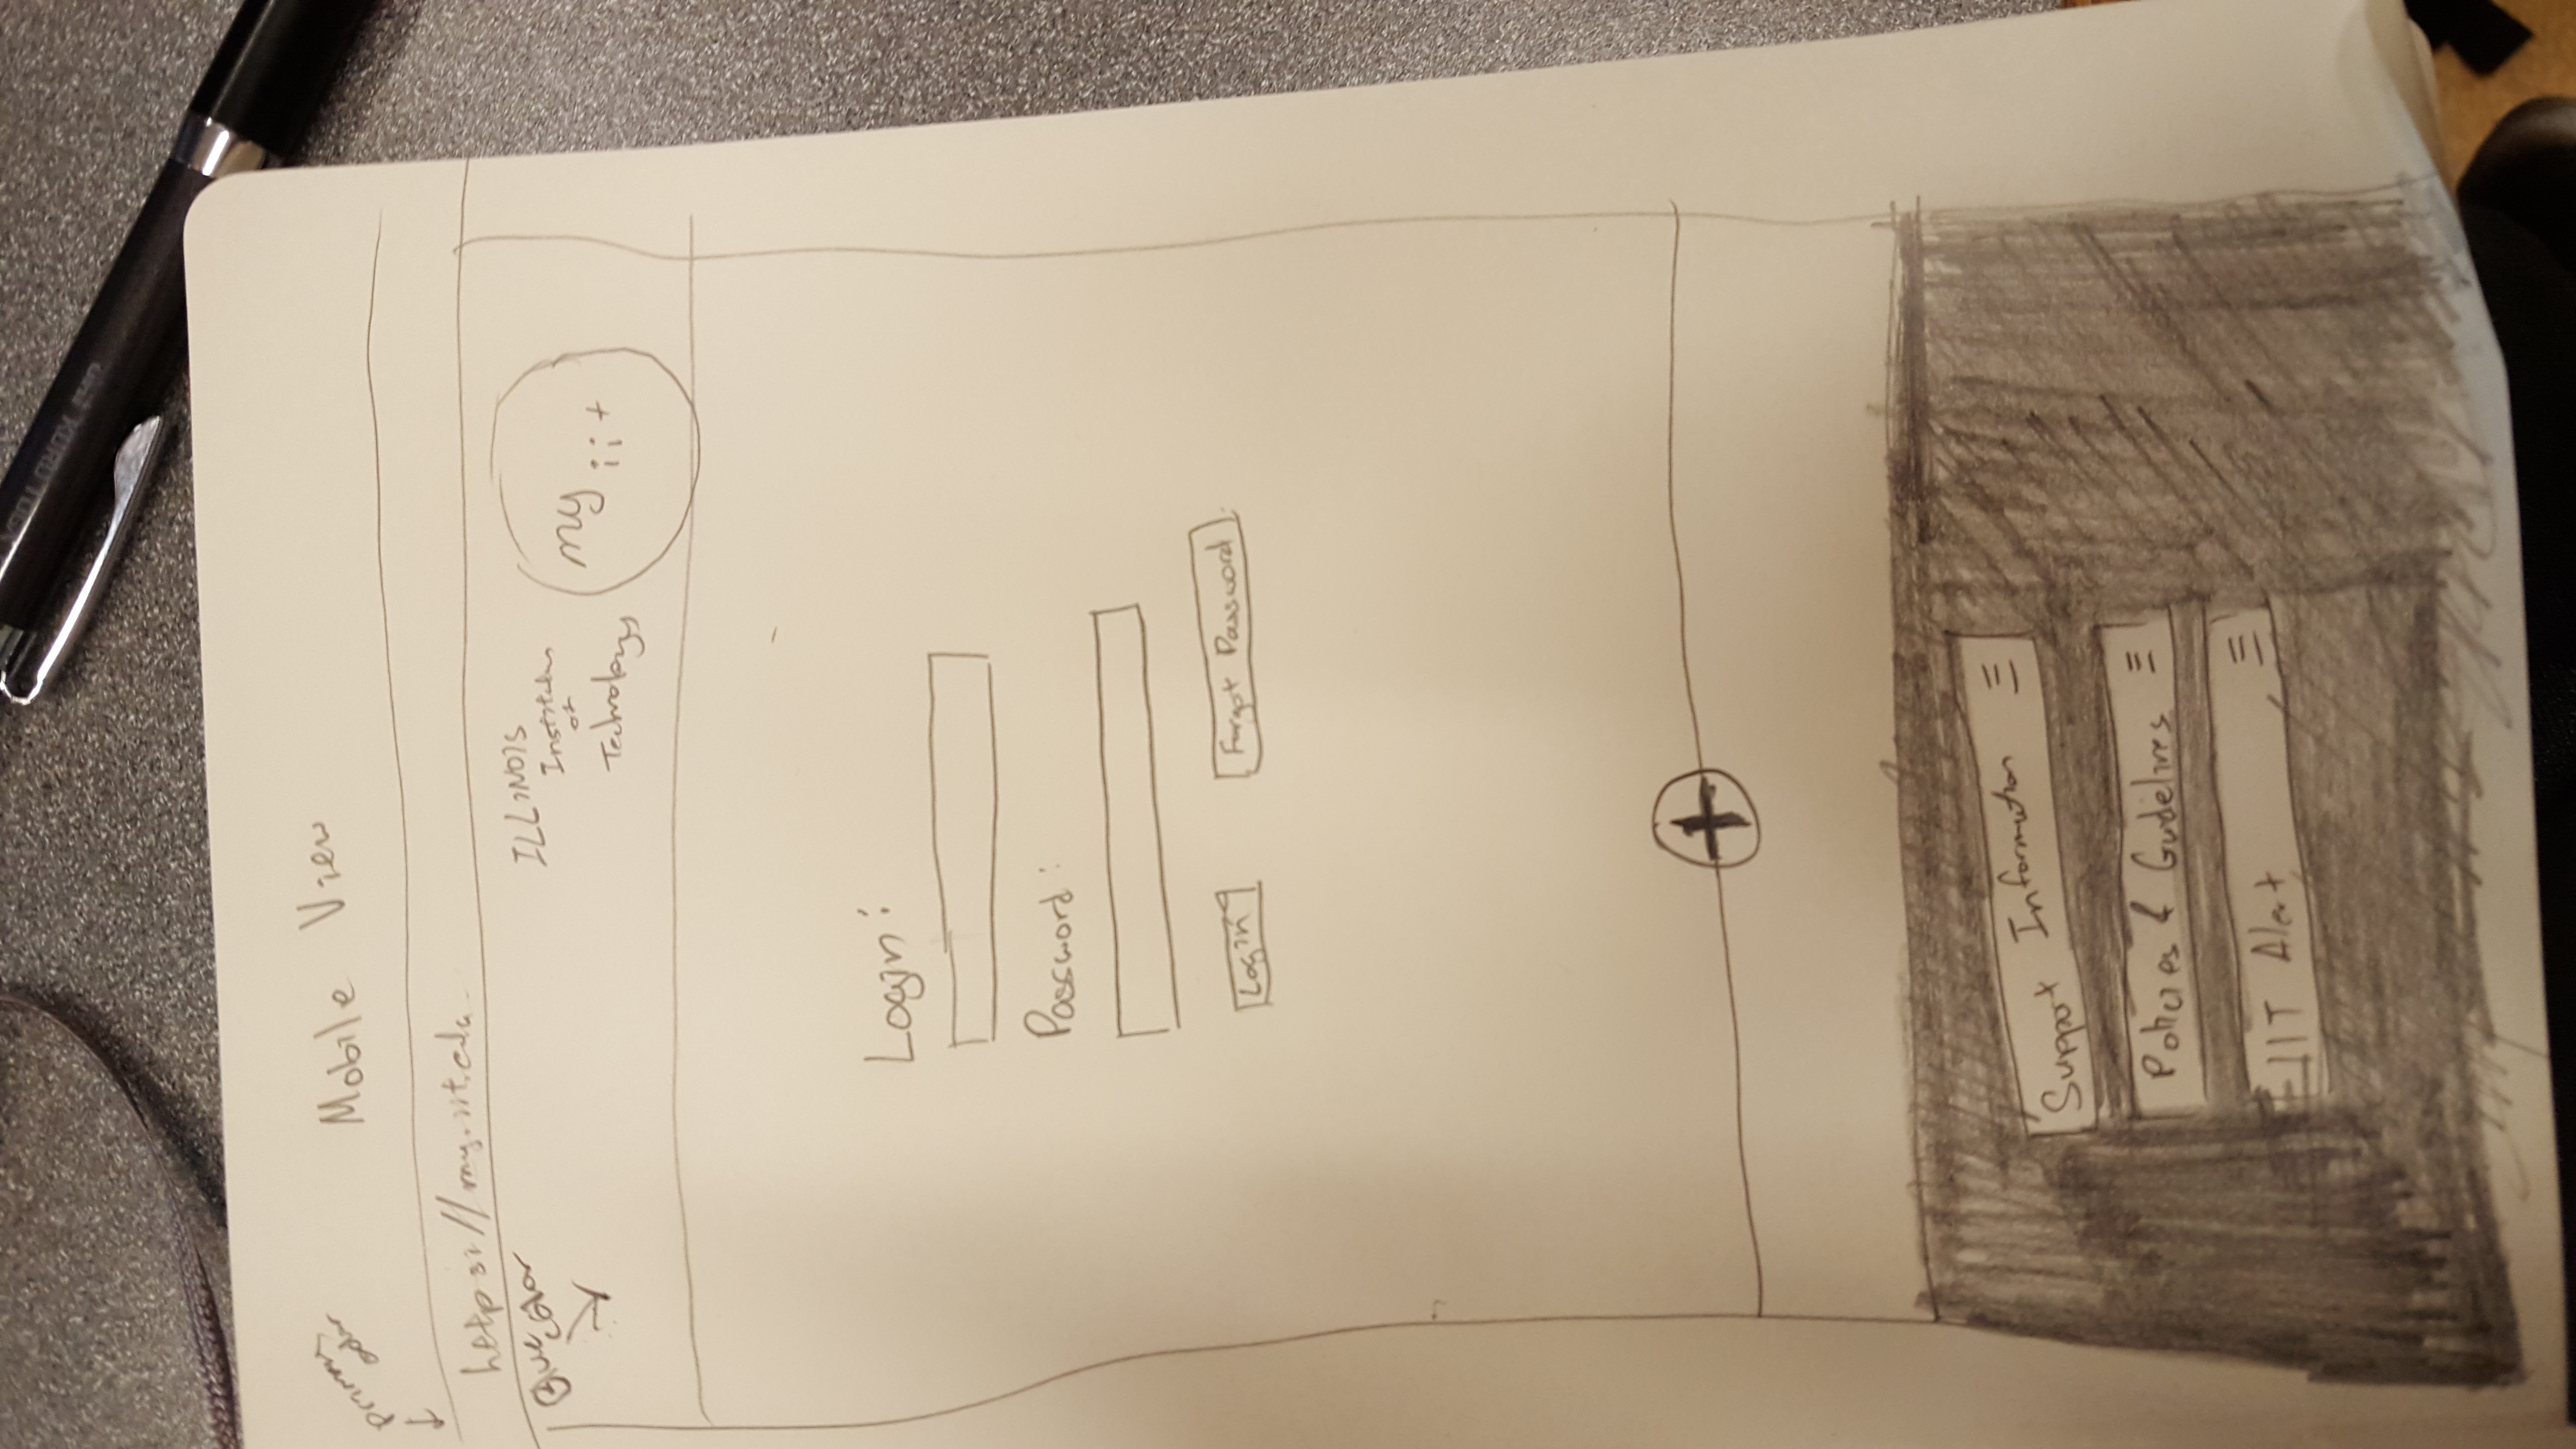 primary
color
Mobile View
https://my.iit.edu
Blue
color
ILLINOIS
Institution
of
Technology
my
iit
Login:
Password:
Login
Forgot Password
Support Information
Policies & Guidelines
IIT Alert